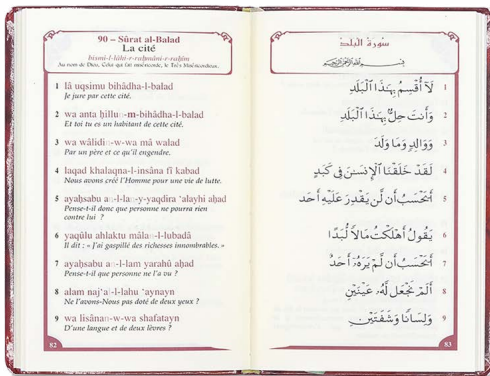 90 – Sûrat al-Balad
La cité
bismi-l-lâhi-r-raḥmâni-r-raḥîm
Au nom de Dieu, Celui qui fait miséricorde, le Très Miséricordieux.
1 lâ uqsimu bihâdha-l-balad
Je jure par cette cité.
2 wa anta ḥillun-m-bihâdha-l-balad
Et toi tu es un habitant de cette cité.
3 wa wâlidin-w-wa mâ walad
Par un père et ce qu'il engendre.
4 laqad khalaqna-l-insâna fî kabad
Nous avons créé l'Homme pour une vie de lutte.
5 ayaḥsabu an-l-lan-y-yaqdira 'alayhi aḥad
Pense-t-il donc que personne ne pourra rien
contre lui ?
6 yaqûlu ahlaktu mâlan-l-lubadâ
Il dit : « J'ai gaspillé des richesses innombrables. »
7 ayaḥsabu an-l-lam yarahû aḥad
Pense-t-il que personne ne l'a vu ?
8 alam naj'al-l-lahu 'aynayn
Ne l'avons-Nous pas doté de deux yeux ?
9 wa lisânan-w-wa shafatayn
D'une langue et de deux lèvres ?
82
سورة البلد
بسم الله الرحمن الرحيم
لَآ أُقْسِمُ بِهَٰذَا ٱلْبَلَدِ 1
وَأَنتَ حِلٌّۢ بِهَٰذَا ٱلْبَلَدِ 2
وَوَالِدٍ وَمَا وَلَدَ 3
لَقَدْ خَلَقْنَا ٱلْإِنسَٰنَ فِى كَبَدٍ 4
أَيَحْسَبُ أَن لَّن يَقْدِرَ عَلَيْهِ أَحَدٌ 5
يَقُولُ أَهْلَكْتُ مَالًا لُّبَدًا 6
أَيَحْسَبُ أَن لَّمْ يَرَهُۥٓ أَحَدٌ 7
أَلَمْ نَجْعَل لَّهُۥ عَيْنَيْنِ 8
وَلِسَانًا وَشَفَتَيْنِ 9
83